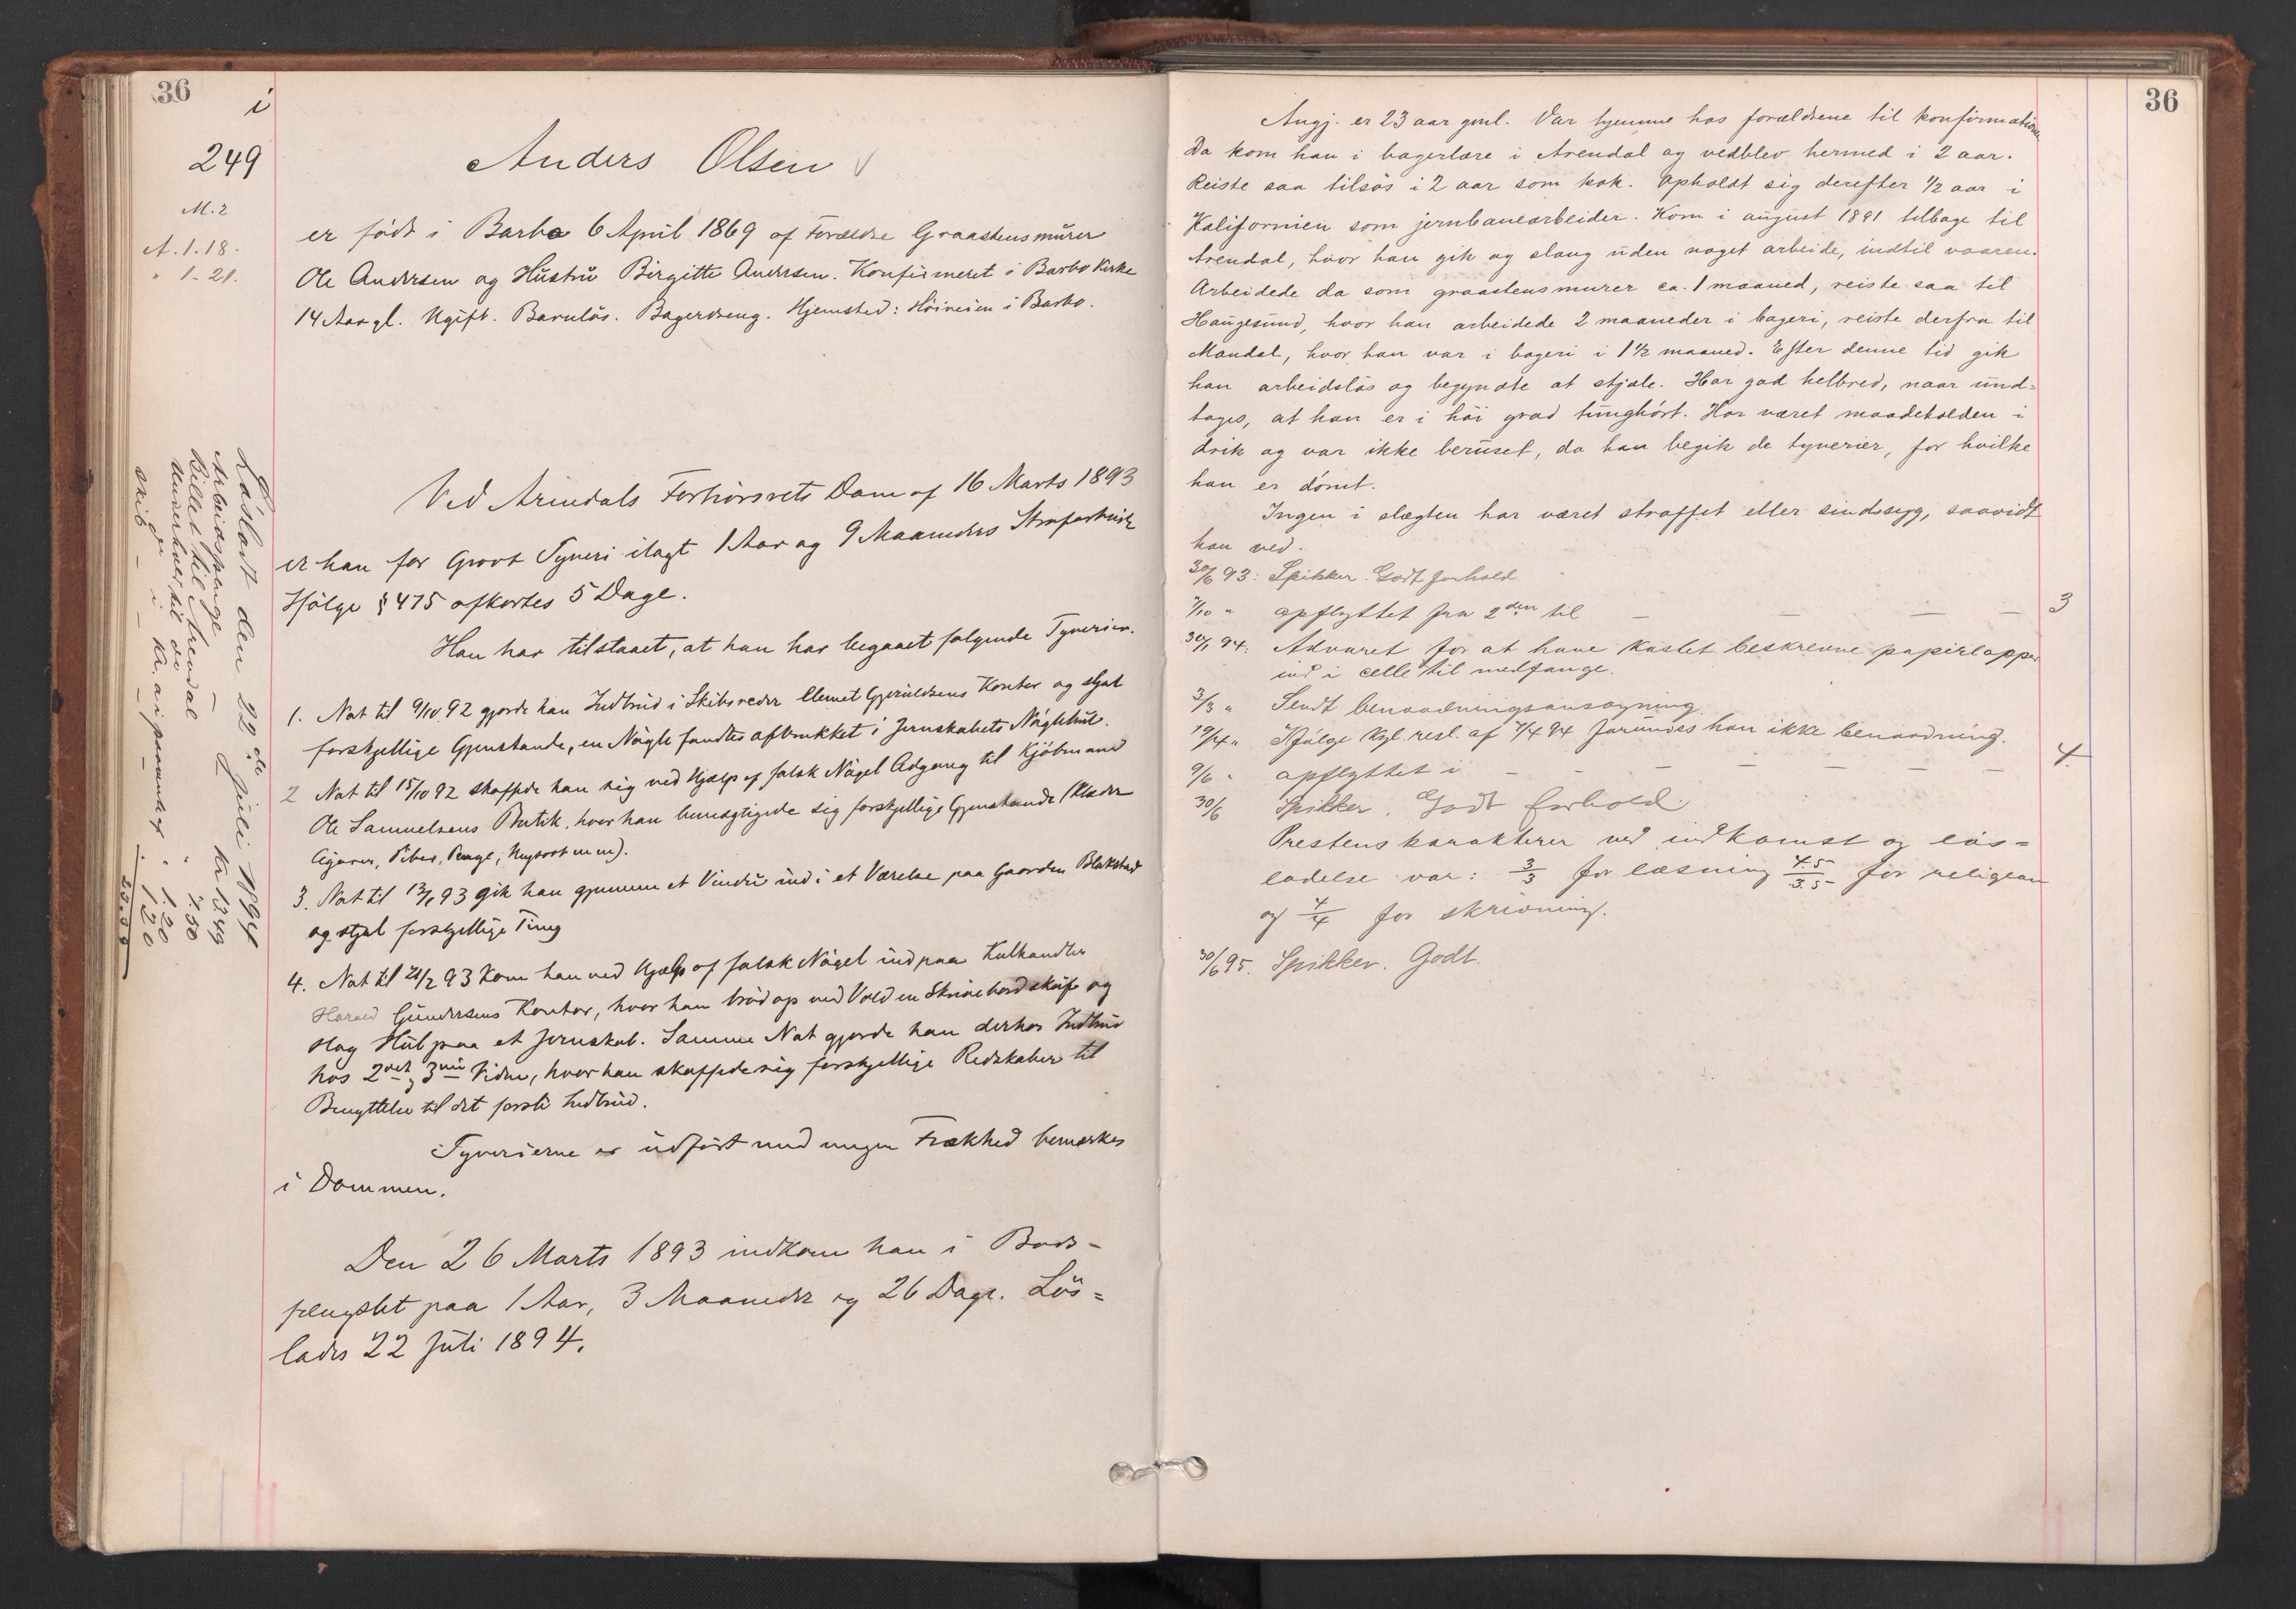 36
i
249
M. 2
A. 1. 18.
" 1 - 21.
Anders Olsen
er födt i Barbo 6 April 1869 af Forældre Graastensmürer
Ole Andersen og Hüstrü Birgitte Andersen. Konfirmeret i Barbo Kirke
14 Aar gl. Ugift. Barnlös. Bagerdreng. Hjemsted: Höiveien i Barbo.
Ved Arendals Forhörsrets Dom af 16 Marts 1893
er han for Grovt Tyveri ilagt 1 Aar og 9 Maaneders Strafarbeide
Ifölge § 475 afkortes 5 Dage.
Han har tilstaaet, at han har begaaet følgende Tyverier.
1. Nat til 9/10 92 gjorde han Indbrüd i Skibsreder Clemet Gjeruldsens Kontor og stjal
forskjellige Gjenstande, en Nögle fandtes afbrukket i Jernskabets Nöglehül.
2 Nat til 15/10 92 skaffede han sig ved Hjælp af falsk Nögel Adgang til Kjöbmand
Ole Samuelsens Butik, hvor han bemægtigede sig forskjellige Gjenstande (Klæder
Cigarer, Piber, Penge, m m).
3. Nat til 13/1 93 gik han gjennem et Vindü ind i et Værelse paa Gaarden Blakstad
og stjal forskjellige Ting
4. Nat til 21/2 93 kom han ved Hjælp af falsk Nögel ind paa Kulhandler
Harald Gündersens Kontor, hvor han bröd op med Vold en Skrivebordsküffe og
slog Hül paa et Jernskab. Samme Nat gjorde han derhos Indbrüd
hos 2det og 3die Vidne, hvor han skaffede sig forskjellige Redskaber til
Benyttelse til det første Indbrüd.
Tyverierne er üdfört med megen Frækhed bemærkes
i Dommen.
Den 26 Marts 1893 indkom han i Bods-
fængslet paa 1 Aar, 3 Maaneder og 26 Dage. Lös=
lades 22 Jüli 1894.
Lösladt den 22de Jüli 1894
Arbeidspenge Kr 13.49
Billet til Arendal " 4.50
Underhold til do " 1.20
36
Angj. er 23 aar gml. Var hjemme hos forældrene til konfirmationen
Da kom han i bagerlære i Arendal og vedblev hermed i 2 aar.
Reiste saa tilsös i 2 aar som kok. Opholdt sig derefter 1/2 aar i
Kalifornien som jernbanearbeider. Kom i aügust 1891 tilbage til
Arendal, hvor han gik og slang üden noget arbeide, indtil vaaren.
Arbeidede da som graastensmurer ca. 1 maaned, reiste saa til
Haügesünd, hvor han arbeidede 2 maaneder i bageri, reiste derfra til
Mandal, hvor han var i bageri i 1 1/2 maaned. Efter denne tid gik
han arbeidslös og begyndte at stjæle. Har god helbred, naar ünd=
tages, at han er i höi grad tünghört. Har været maadeholden i
drik og var ikke berüset, da han begik de tyverier, for hvilke
han er dömt.
Ingen i slægten har været straffet eller sindssyg, saavidt
han ved.
30/6 93: Spikker. Godt forhold.
7/10 " opflyttet fra 2den til — — — — 3
30/1 94: Advaret for at have kastet beskrevne papirlapper
ind i celle til medfange.
3/3 " Sendt benaadningsansøgning.
19/4 " Ifölge kgl. resl. af 7/4 94 forundes han ikke benaadning.
9/6 " opflyttet i — — — — — — 4.
30/6 Spikker. Godt forhold.
Prestens karakterer ved indkomst og lös=
ladelse var: 3/3 for læsning 4.5/3.5 for religion
og 4/4 for skrivning.
30/6 95. Spikker. Godt.